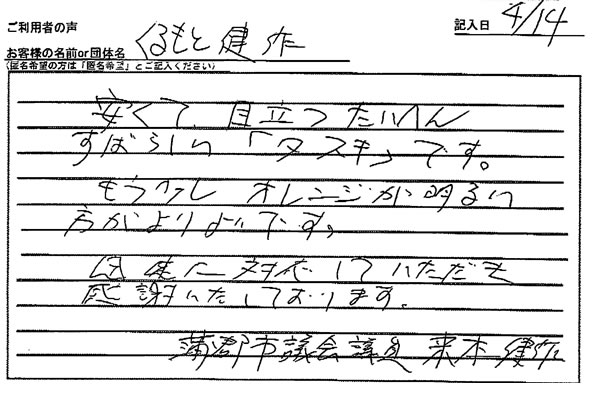 ご利用者の声
記入日 4/14
お客様の名前or団体名 くるもと 健作
(匿名希望の方は「匿名希望」とご記入ください)
安くて、目立つ たいへん
すばらしい 「タスキ」です。
もう少し オレンジが明るい
方がより よいです。
迅速に対応していただき
感謝いたしております。
蒲郡市議会議員 来本健作